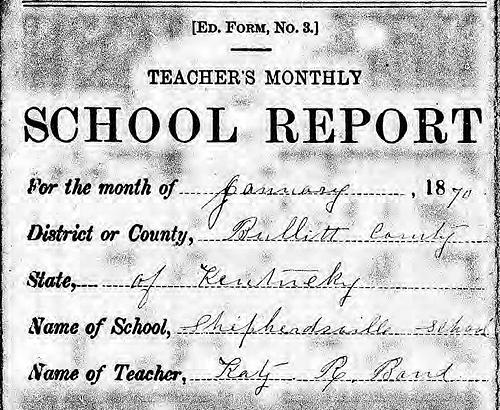 [ED. FORM, NO. 3.]
TEACHER'S MONTHLY
SCHOOL REPORT
For the month of January, 1870
District or County, Bullitt County
State, of Kentucky
Name of School, Shepherdsville School
Name of Teacher, Katy R. Band